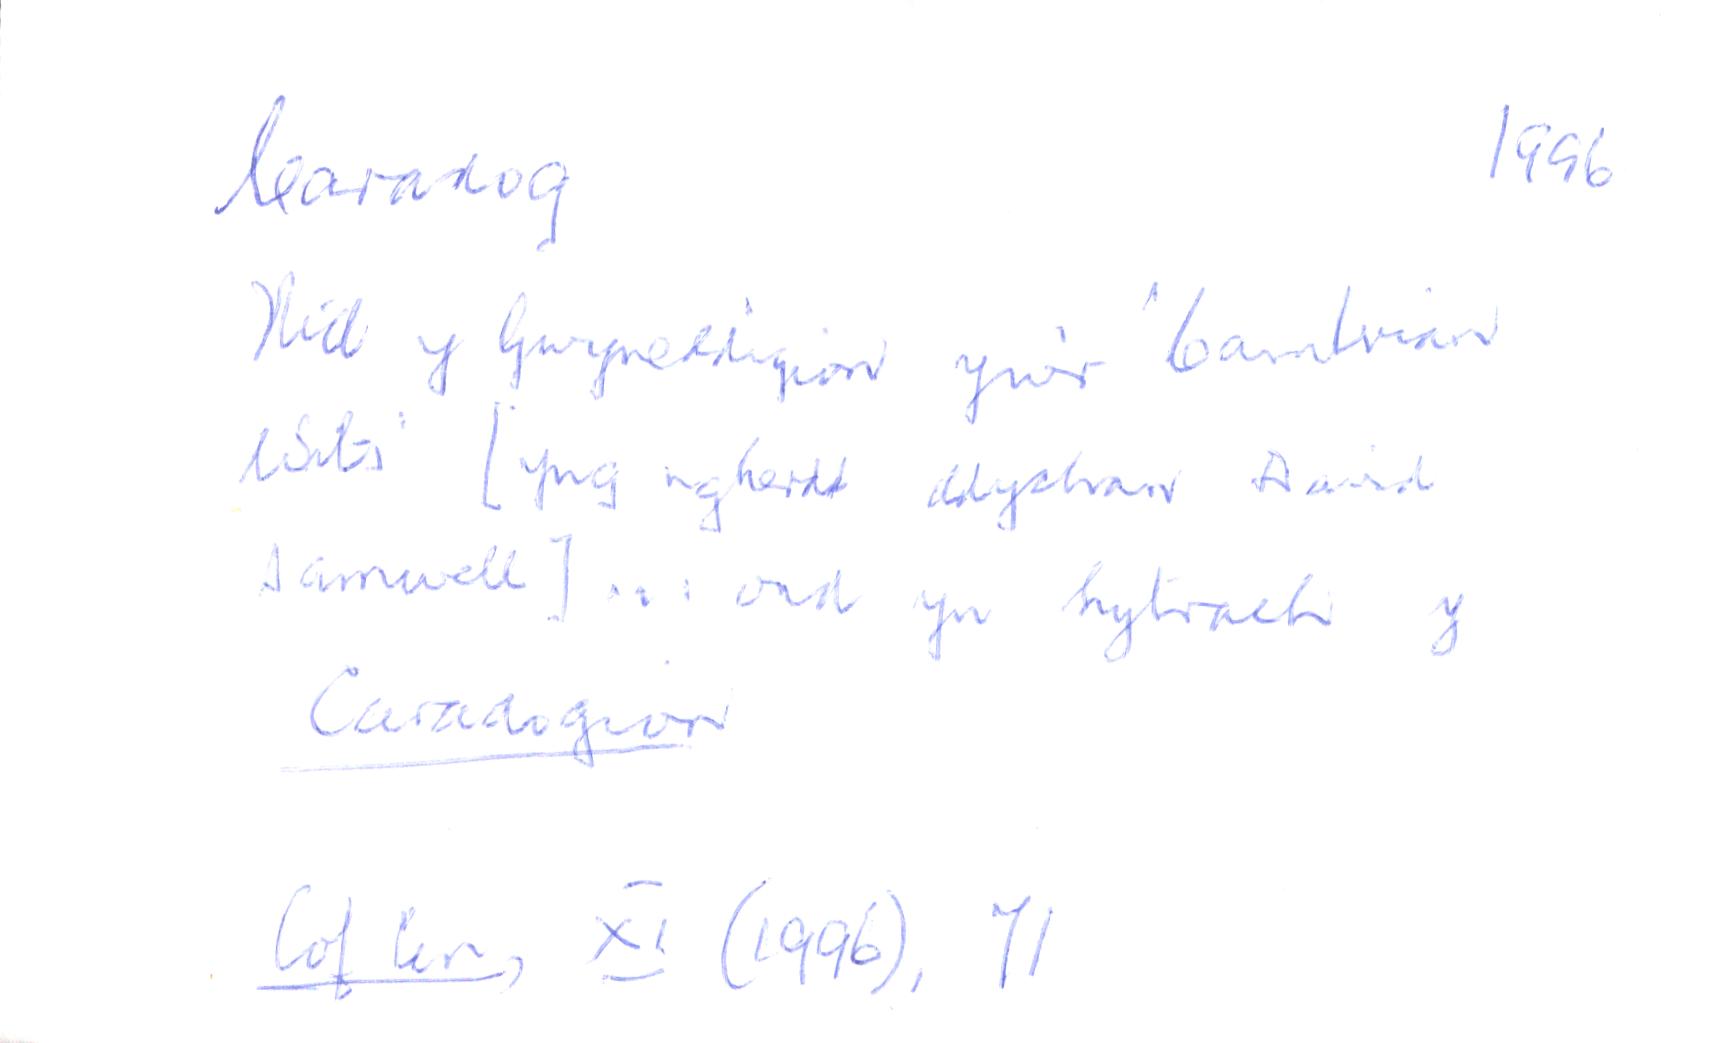 Caradog 1996
Nid y Gwyneddigion yw'r 'Cambrian
Wits' [yng ngherdd ddychan David
Samwell] ... ond yn hytrach y
Caradogion
Cof Cen, XI (1996), 71